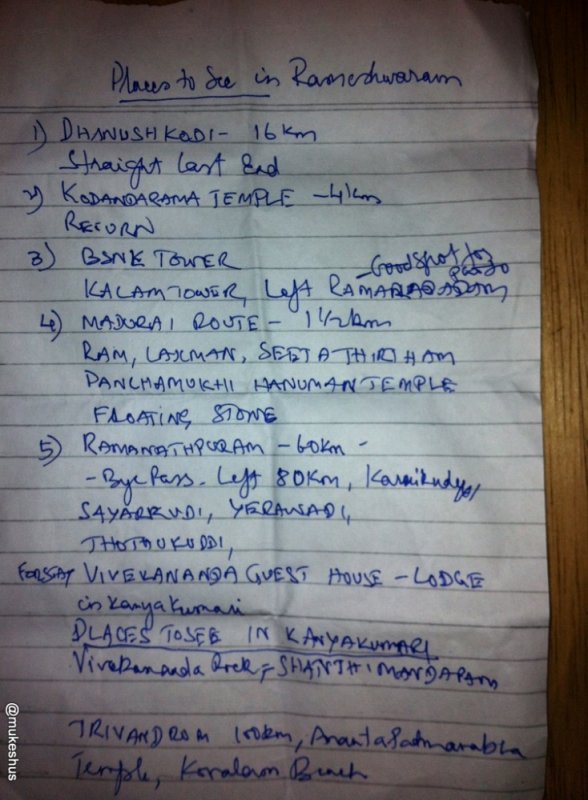 Places to See in Rameshwaram
1) DHANUSHKODI - 16 km
Straight Last End
2) KODANDARAMA TEMPLE - 4 km
RETURN
3) BSNL TOWER
- Good Spot for
KALAM TOWER, Left
4) MADURAI ROUTE - 1 1/2 km
RAM, LAXMAN, SEETA THIRTHAM
PANCHAMUKHI HANUMAN TEMPLE
FLOATING STONE
5) RAMANATHPURAM - 60 km -
- Bye Pass - Left 80 km,
SAYARKUDI, YERAWADI,
THOTHUKUDDI,
FOR STAY VIVEKANANDA GUEST HOUSE - LODGE
in Kanyakumari
PLACES TO SEE IN KANYAKUMARI
Vivekananda Rock, SHANTHI MANDAPAM
TRIVANDROM 100 km, Ananta Padmanabha
Temple, Kovalam Beach
@mukeshus